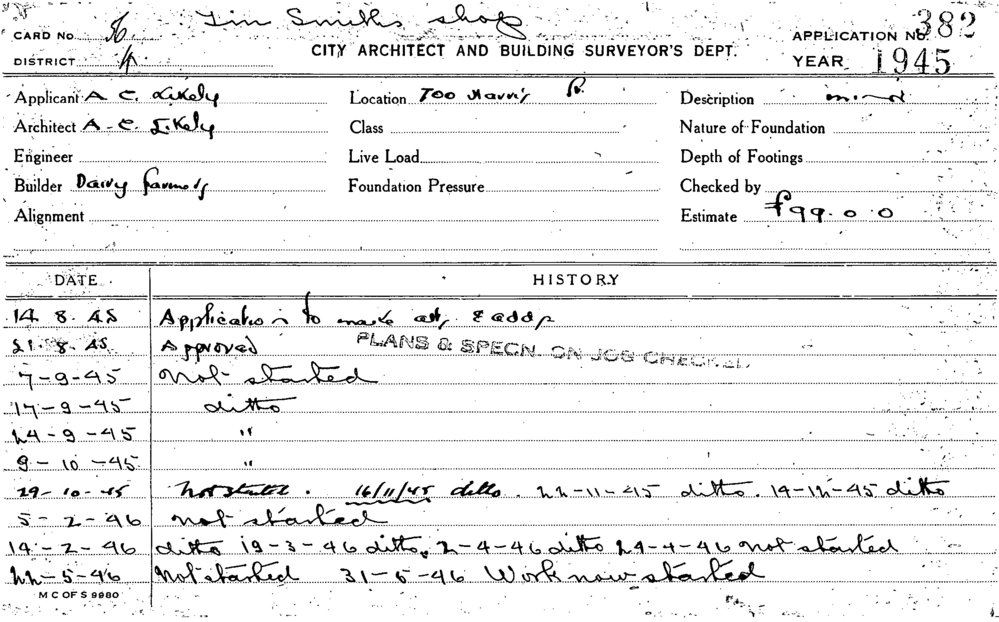 Tim Smiths shop
CARD No
382
APPLICATION No.
CITY ARCHITECT AND BUILDING SURVEYOR'S DEPT.
DISTRICT
YEAR 1945
Applicant A C. Likely
Location 700 Harris St.
Description minor
Architect A. C. Likely
Class
Nature of Foundation
Engineer
Live Load
Depth of Footings
Builder Dairy Farmers
Foundation Pressure
Checked by
Alignment
Estimate £99.0.0
DATE HISTORY
14 8. 45 Application to make alts & adds
21.8.45 Approved PLANS & SPECN. ON JOB CHECKED
7-9-45 Not started
17-9-45 ditto
24-9-45 "
9-10-45 "
29-10-45 Not started. 16/11/45 ditto. 22-11-45 ditto. 14-12-45 ditto
5-2-46 not started
14-2-46 ditto 19-3-46 ditto, 2-4-46 ditto 24-4-46 not started
22-5-46 Not started 31-5-46 Work now started
M C OF S 9980